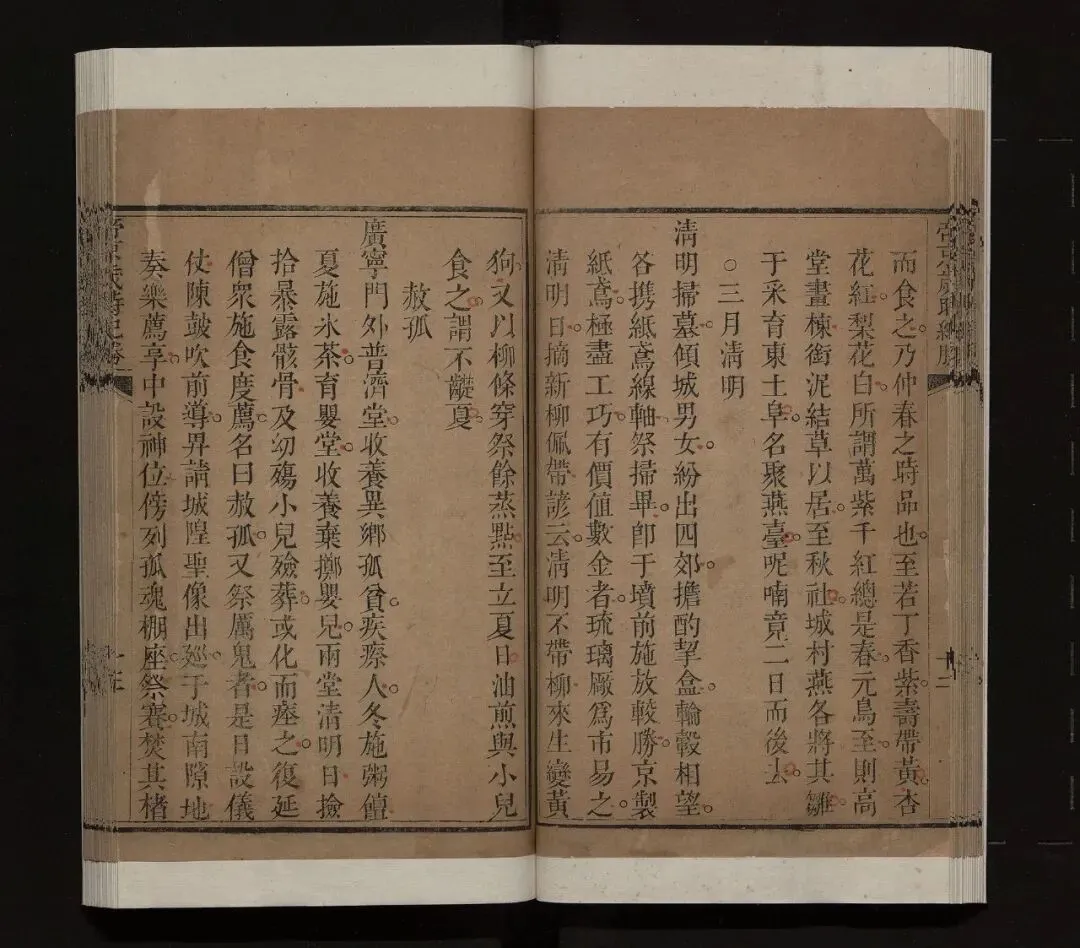 而食之乃仲春之時品也至若丁香紫壽帶黃杏
花紅梨花白所謂萬紫千紅總是春元鳥至則高
堂畫棟銜泥結草以居至秋社城村燕各將其雛
于采育東土阜名聚燕臺呢喃竟二日而後去
○三月淸明
淸明掃墓傾城男女紛出四郊擔酌挈盒輪轂相望
各携紙鳶線軸祭掃畢卽于墳前施放較勝京製
紙鳶極盡工巧有價値數金者琉璃廠爲市易之
淸明日摘新柳佩帶諺云淸明不帶柳來生變黃
狗又以柳條穿祭餘蒸點至立夏日油煎與小兒
食之謂不齼夏
赦孤
廣寧門外普濟堂收養異鄉孤貧疾瘵人冬施粥饘
夏施氷茶育嬰堂收養棄擲嬰兒兩堂淸明日撿
拾暴露骸骨及幼殤小兒殮葬或化而瘞之復延
僧衆施食度薦名曰赦孤又祭厲鬼者是日設儀
仗陳鼓吹前導舁請城隍聖像出廵于城南隙地
奏樂薦享中設神位傍列孤魂棚座祭賽焚其楮